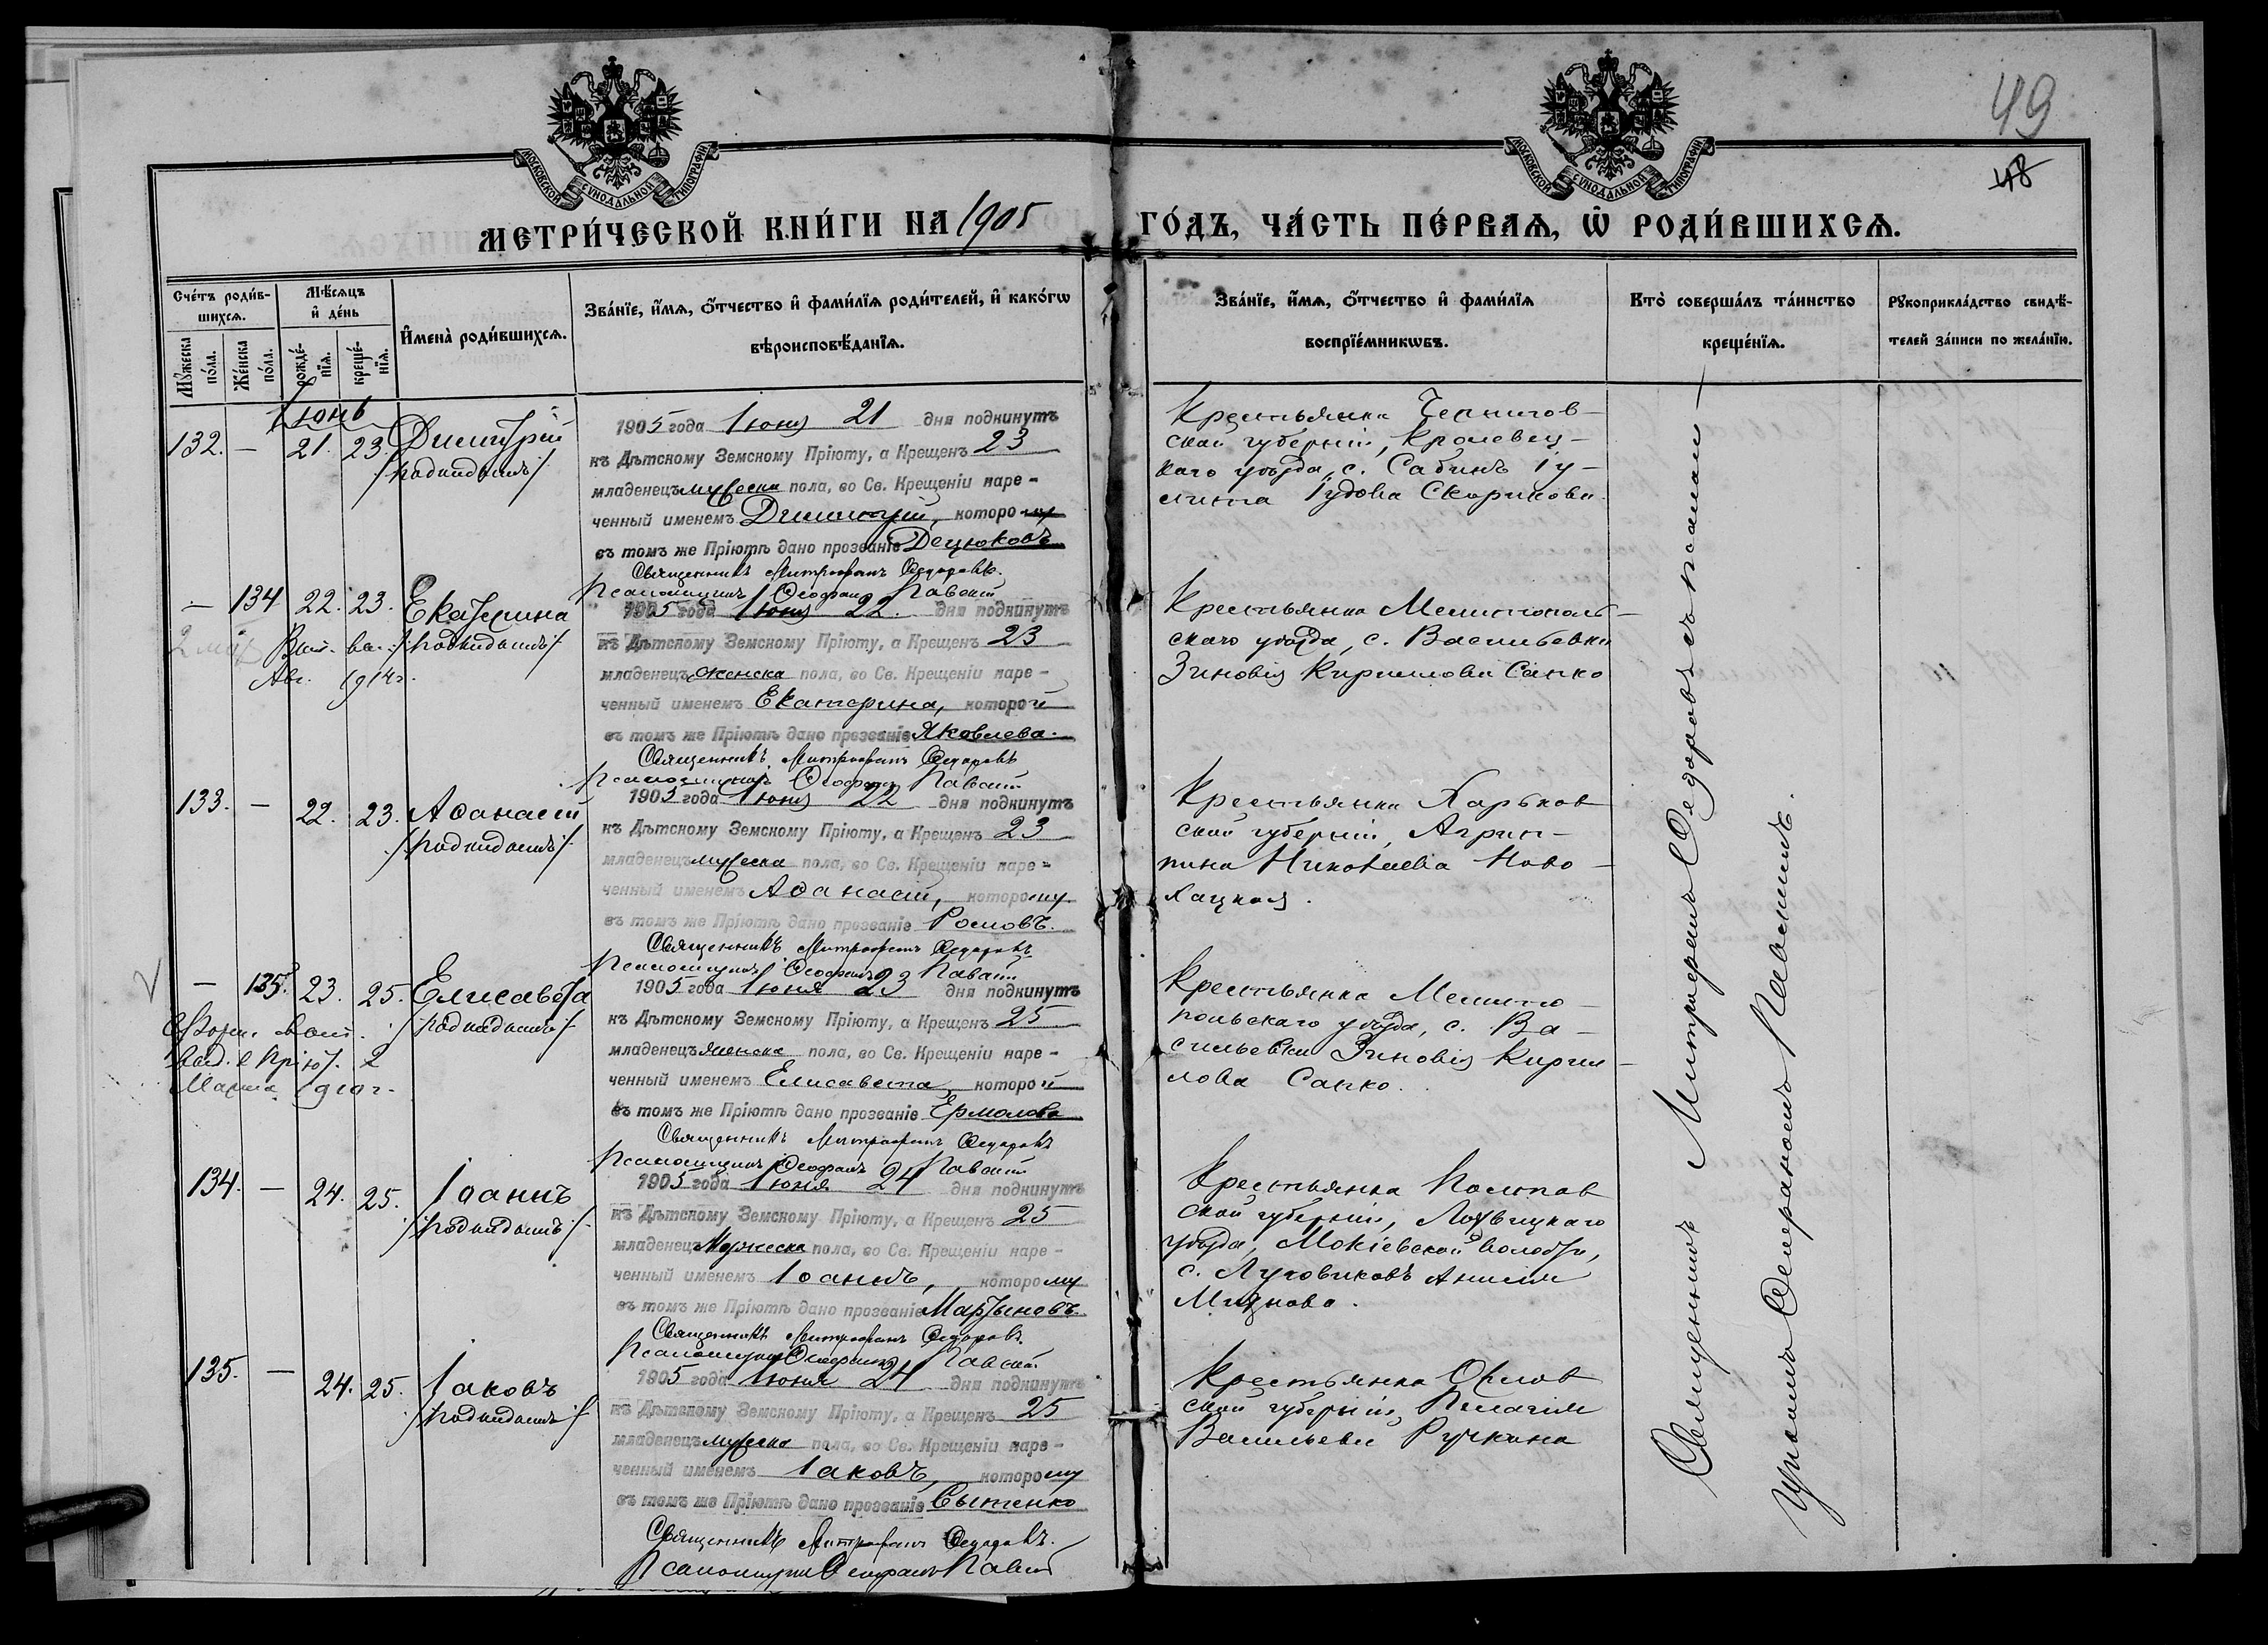 49
48
МОСКОВСКОЙ СѴНОДАЛЬНОЙ ТИПОГРАФІИ
МОСКОВСКОЙ СѴНОДАЛЬНОЙ ТИПОГРАФІИ
МЕТРИ́ЧЕСКОЙ КНИ́ГИ НА 1905 ГО́ДЪ, ЧА́СТЬ ПЕ́РВАѦ, Ѽ РОДИ́ВШИХСѦ.
Сче́тъ роди́в-
шихсѧ.
Мꙋ́жеска по́ла.
Же́нска по́ла.
Мѣ́сѧцъ и҆ де́нь
рожде́-нїѧ.
креще́-нїѧ.
И҆мена̀ роди́вшихсѧ.
Зва́нїе, и҆́мѧ, ѻ҆́тчество и҆ фами́лїѧ роди́телей, и҆ како́гѡ
вѣроисповѣ́данїѧ.
Зва́нїе, и҆́мѧ, ѻ҆́тчество и҆ фами́лїѧ
воспрїе́мникѡвъ.
Кто̀ соверша́лъ та́инство
креще́нїѧ.
Рꙋкоприкла́дство свидѣ́-
телей за́писи по жела́нїю.
Іюнь
132. — 21. 23. Димитрій
/подкидышъ/
1905 года Іюня 21 дня подкинутъ
къ Дѣтскому Земскому Пріюту, а Крещенъ 23
младенецъ мужеска пола, во Св. Крещеніи наре-
ченный именемъ Димитрій, которому
въ томъ же Пріютѣ дано прозваніе Децюковъ
Священникъ Митрофанъ Ѳедоровъ.
Псаломщикъ Ѳеофанъ
Крестьянка Чернигов-
ской губерніи, Кролевец-
каго уѣзда, с.
— 134 22. 23. Екатерина
/подкидышъ/
Авг. 1914 г.
1905 года Іюня 22 дня подкинутъ
къ Дѣтскому Земскому Пріюту, а Крещенъ 23
младенецъ женска пола, во Св. Крещеніи наре-
ченный именемъ Екатерина, которой
въ томъ же Пріютѣ дано прозваніе Яковлева.
Священникъ Митрофанъ Ѳедоровъ
Псаломщикъ Ѳеофанъ
Крестьянка Мелитополь-
скаго уѣзда, с. Васильевки
Зиновія Кириллова Сапко
133. — 22. 23. Аѳанасій
/подкидышъ/
1905 года Іюня 22 дня подкинутъ
къ Дѣтскому Земскому Пріюту, а Крещенъ 23
младенецъ мужеска пола, во Св. Крещеніи наре-
ченный именемъ Аѳанасій, которому
въ томъ же Пріютѣ дано прозваніе Ромовъ.
Священникъ Митрофанъ Ѳедоровъ
Псаломщикъ Ѳеофанъ
Крестьянка Харьков-
ской губерніи, Агрип-
пина Николаева Ново-
— 135. 23. 25. Елисавета
/подкидышъ/
Марта 1910 г.
1905 года Іюня 23 дня подкинутъ
къ Дѣтскому Земскому Пріюту, а Крещенъ 25
младенецъ женска пола, во Св. Крещеніи наре-
ченный именемъ Елисавета, которой
въ томъ же Пріютѣ дано прозваніе Ермолова
Священникъ Митрофанъ Ѳедоровъ
Псаломщикъ Ѳеофанъ
Крестьянка Мелито-
польскаго уѣзда, с. Ва-
сильевки Зиновія Кирил-
лова Сапко.
134. — 24. 25. Іоаннъ
/подкидышъ/
1905 года Іюня 24 дня подкинутъ
къ Дѣтскому Земскому Пріюту, а Крещенъ 25
младенецъ Мужеска пола, во Св. Крещеніи наре-
ченный именемъ Іоаннъ, которому
въ томъ же Пріютѣ дано прозваніе Мартыновъ.
Священникъ Митрофанъ Ѳедоровъ
Псаломщикъ Ѳеофанъ
Крестьянка Полтав-
ской губерніи, Лохвицкаго
уѣзда,
135. — 24. 25. Іаковъ
/подкидышъ/
1905 года Іюня 24 дня подкинутъ
къ Дѣтскому Земскому Пріюту, а Крещенъ 25
младенецъ мужеска пола, во Св. Крещеніи наре-
ченный именемъ Іаковъ, которому
въ томъ же Пріютѣ дано прозваніе Сытенко
Священникъ Митрофанъ Ѳедоровъ.
Псаломщикъ Ѳеофанъ
Крестьянка Орлов-
ской губерніи, Пелагія
Васильева Ручкина
Священникъ Митрофанъ Ѳедоровъ съ псалом-
щикомъ Ѳеофаномъ